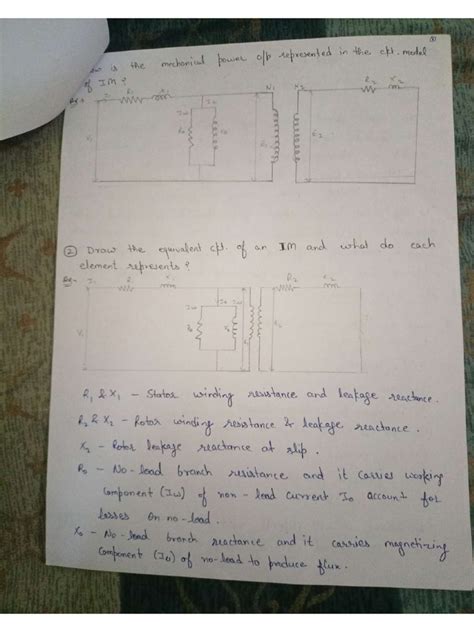 is the mechanical power o/p represented in the ckt. model
of IM ?
I₁ R₁ X₁ N₁ N₂ R₂ X₂
I₀
Iω
V₁ R₀ X₀ E₁ E₂
② Draw the equivalent ckt. of an IM and what do each
element represents ?
I₁ R₁ X₁ R₂ X₂
I₀
Iω
V₁ R₀ X₀
R₁ & X₁ - Stator winding resistance and leakage reactance.
R₂ & X₂ - Rotor winding resistance & leakage reactance.
X₂ - Rotor leakage reactance at slip.
R₀ - No-load branch resistance and it carries working
component (Iω) of non-load current I₀ account for
losses on no-load.
X₀ - No-load branch reactance and it carries magnetizing
component (I₀) of no-load to produce flux.